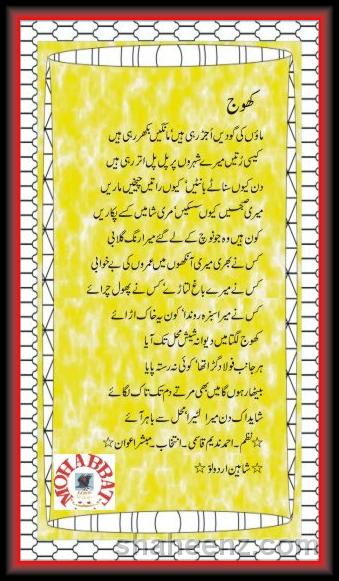 کھوج
ماؤں کی گودیں اُجڑ رہی ہیں' مانگیں بکھر رہی ہیں
کیسی رُتیں میرے شہروں پر پل پل اتر رہی ہیں
دن کیوں سناٹے بانٹیں' کیوں راتیں چیخیں ماریں
میری صبحیں کیوں سسکیں' مری شامیں کسے پکاریں
کون ہیں وہ جو نوچ کے لے گئے میرا رنگ گلابی
کس نے بھری میری آنکھوں میں عمروں کی بے خوابی
کس نے میرے باغ لتاڑے' کس نے پھول چرائے
کس نے میرا سبزہ روندا' کون یہ خاک اڑائے
کھوج لگتا میں دیوانہ شیش محل تک آیا
ہر جانب فولاد گڑا تھا' کوئی نہ رستہ پایا
بیٹھا رہوں گا میں بھی مرتے دم تک تاک لگائے
شاید اک دن میرا لٹیرا' محل سے باہر آئے
☆ نظم ۔ احمد ندیم قاسمی ۔ انتخاب ۔ مبشر اعوان ☆
☆ شاہین اردو لو ☆
MOHABBAT
shaheenz.com